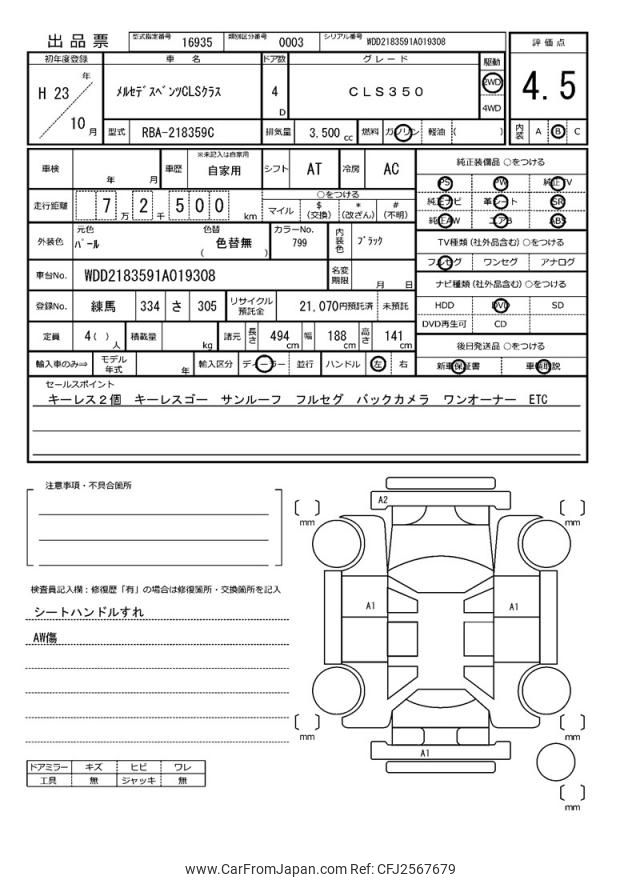 出品票 型式指定番号 16935 類別区分番号 0003 シリアル番号 WDD2183591A019308
評価点
初年度登録 車名 ドア数 グレード 駆動
H 23 年 メルセデスベンツCLSクラス 4 D CLS350 2WD 4WD 4.5
10 月 型式 RBA-218359C 排気量 3.500 cc 燃料 ガソリン 軽油 ( ) 内装 A B C
車検 年 月 車歴 ※未記入は自家用 自家用 シフト AT 冷房 AC
純正装備品 ○をつける
PS PW 純正TV
純正ナビ 革シート SR
純正AW エアB ABS
走行距離 7 万 2 千 5 0 0 km
○をつける
マイル $ (交換) * (改ざん) # (不明)
外装色 元色 パール 色替 ( 色替無 ) カラーNo. 799 内装色 ブラック
TV種類 (社外品含む) ○をつける
フルセグ ワンセグ アナログ
車台No. WDD2183591A019308 名変期限 月 日
ナビ種類 (社外品含む) ○をつける
HDD DVD SD
DVD再生可 CD
登録No. 練馬 334 さ 305 リサイクル預託金 21,070円預託済 未預託
定員 4( ) 人 積載量 kg 諸元 長さ 494 cm 幅 188 cm 高さ 141 cm
後日発送品 ○をつける
新車保証書 車輌取説
輸入車のみ⇒ モデル年式 年 輸入区分 ディーラー 並行 ハンドル 左 右
セールスポイント
キーレス2個 キーレスゴー サンルーフ フルセグ バックカメラ ワンオーナー ETC
注意事項・不具合箇所
検査員記入欄:修復歴「有」の場合は修復箇所・交換箇所を記入
シートハンドルすれ
AW傷
ドアミラー キズ ヒビ ワレ
工具 無 ジャッキ 無
A2
mm mm
A1 A1
mm mm
A1
mm
www.CarFromJapan.com Ref: CFJ2567679